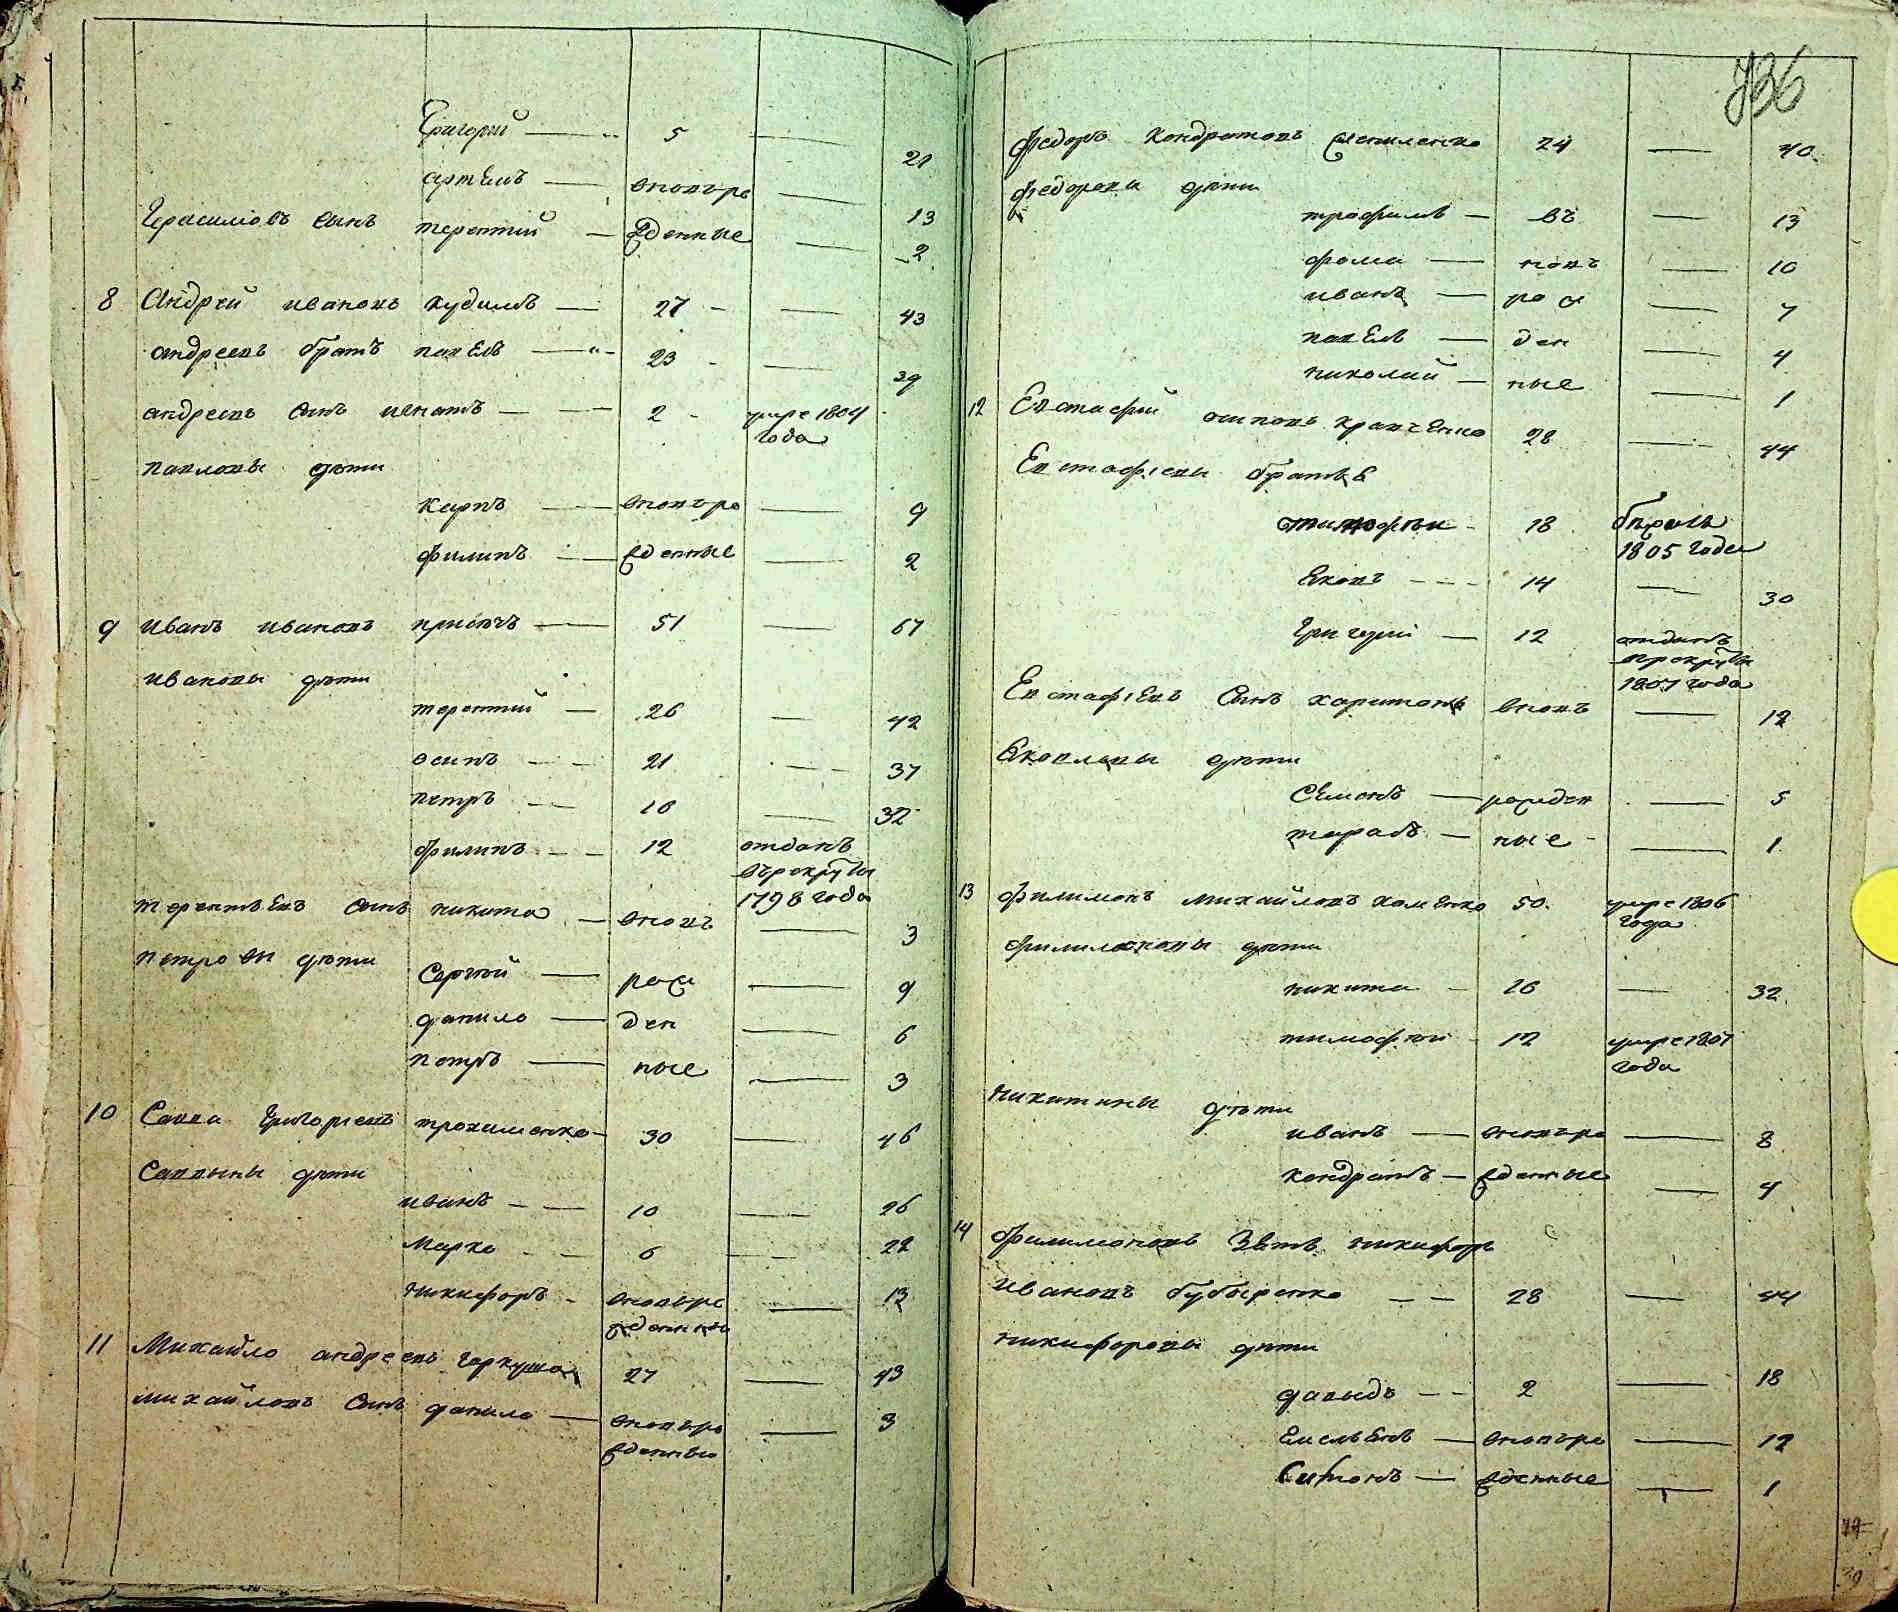 Григорий — 5 — 21
артемъ — вновъро — 13
Герасимовъ сынъ терентий — жденные — 2
8 Андрей ивановъ кудимъ — 27 — 43
андреевъ братъ павелъ — 23 — 39
андреевъ сынъ игнатъ — 2 умре 1804
года
павловы дѣти
карпъ — вновъро — 9
филипъ — жденные — 2
9 иванъ ивановъ — 51 — 67
ивановы дѣти
терентий — 26 — 42
осипъ — 21 — 37
петръ — 16 — 32
филипъ — 12 отданъ
въ рекруты
1798 года
терентьевъ сынъ никита — вновъ — 3
петровы дѣти
Сергѣй — рож — 9
данило — ден — 6
петръ — ные — 3
10 Савва Григорьевъ трохименко — 30 — 46
Саввины дѣти
иванъ — 10 — 26
Марко — 6 — 22
никифоръ — вновьро — 12
жденные
11 Михайло андреевъ гаркуша 27 — 43
михайловъ сынъ данило — вновъро — 3
жденные
736
федоръ кондратовъ 24 — 40
федоровы дѣти
трофимъ — въ — 13
фома — новъ — 10
иванъ — ро ж — 7
павелъ — ден — 4
николай — ные — 1
12 Евстафий осиповъ кравченко 28 — 44
Евстафіевы братья
тимофѣй — 18
1805 года
Яковъ — 14 — 30
Григорий — 12 отданъ
врекруты
1807 года
Евстафіевъ сынъ харитонъ вновъ — 12
Яковлевы дѣти
Семонъ — рожден — 5
тарасъ — ные — 1
13 филимонъ михайловъ хоменко 50 умре 1806
года
филимоновы дѣти
никита — 16 — 32
тимофѣй — 12 умре 1807
года
никитины дѣти
иванъ — вновъро — 8
кондратъ — жденные — 4
14 филимоновъ зять никифоръ
ивановъ бубыренко — 28 — 44
никифоровы дѣти
давыдъ — 2 — 18
емельянъ — вновъро — 12
Симонъ — жденные — 1